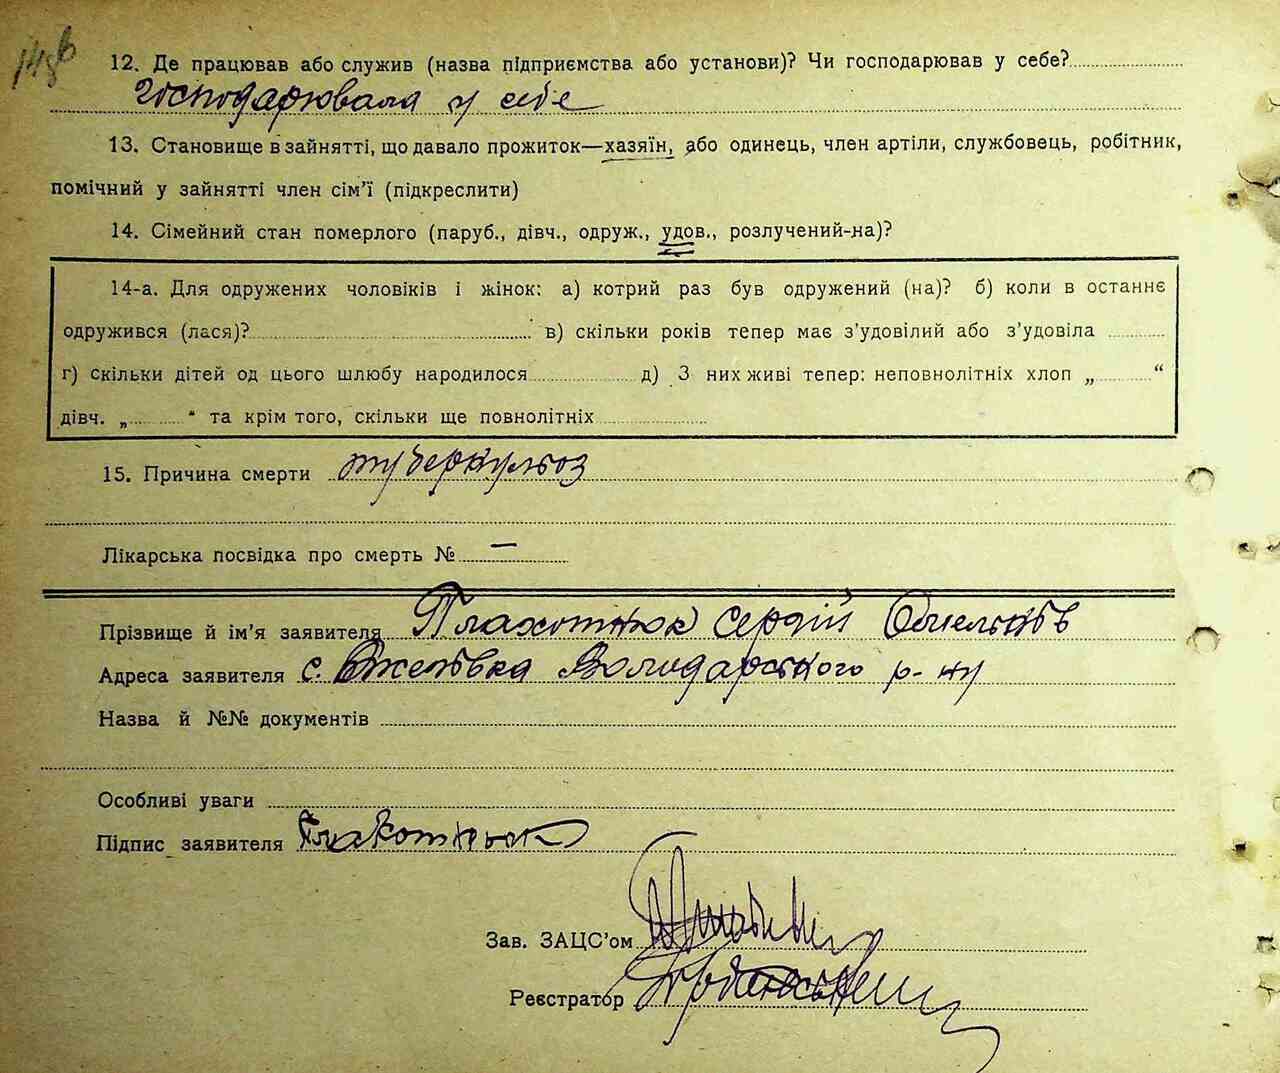 12. Де працював або служив (назва підприємства або установи)? Чи господарював у себе?
Господарювала у себе
13. Становище в зайнятті, що давало прожиток—хазяїн, або одинець, член артіли, службовець, робітник,
помічний у зайнятті член сім’ї (підкреслити)
14. Сімейний стан померлого (паруб., дівч., одруж., удов., розлучений-на)?
14-а. Для одружених чоловіків і жінок: а) котрий раз був одружений (на)? б) коли в останнє
одружився (лася)? в) скільки років тепер має з’удовілий або з’удовіла
г) скільки дітей од цього шлюбу народилося д) З них живі тепер: неповнолітніх хлоп „ “
дівч. „ “ та крім того, скільки ще повнолітніх
15. Причина смерти туберкульоз
Лікарська посвідка про смерть № —
Прізвище й ім’я заявителя Плахотнюк Сергій
Адреса заявителя с. Володарського р-ну
Назва й №№ документів
Особливі уваги
Підпис заявителя Плахотнюк
Зав. ЗАЦС’ом
Реєстратор